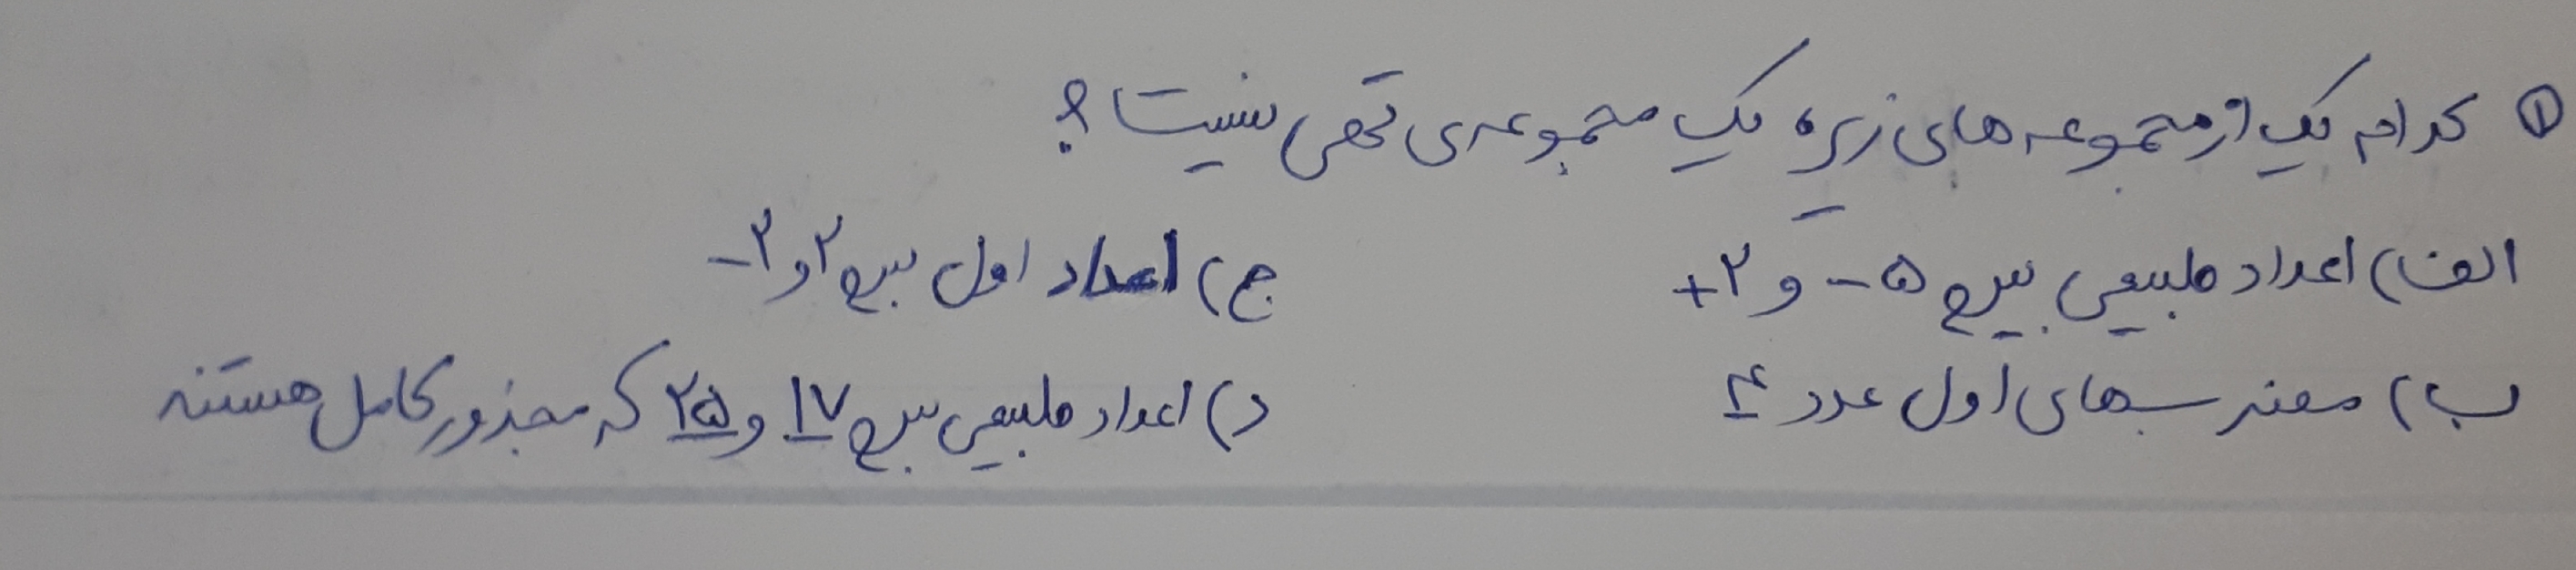 ① کدام یک از مجموعه های زیر، یک مجموعه ی تهی نیست؟
الف) اعداد طبیعی بین ۵- و ۲+ ج) اعداد اول بین ۲ و ۲-
ب) مضرب های اول عدد ۴ د) اعداد طبیعی بین ۱۷ و ۲۵ که مجذور کامل هستند